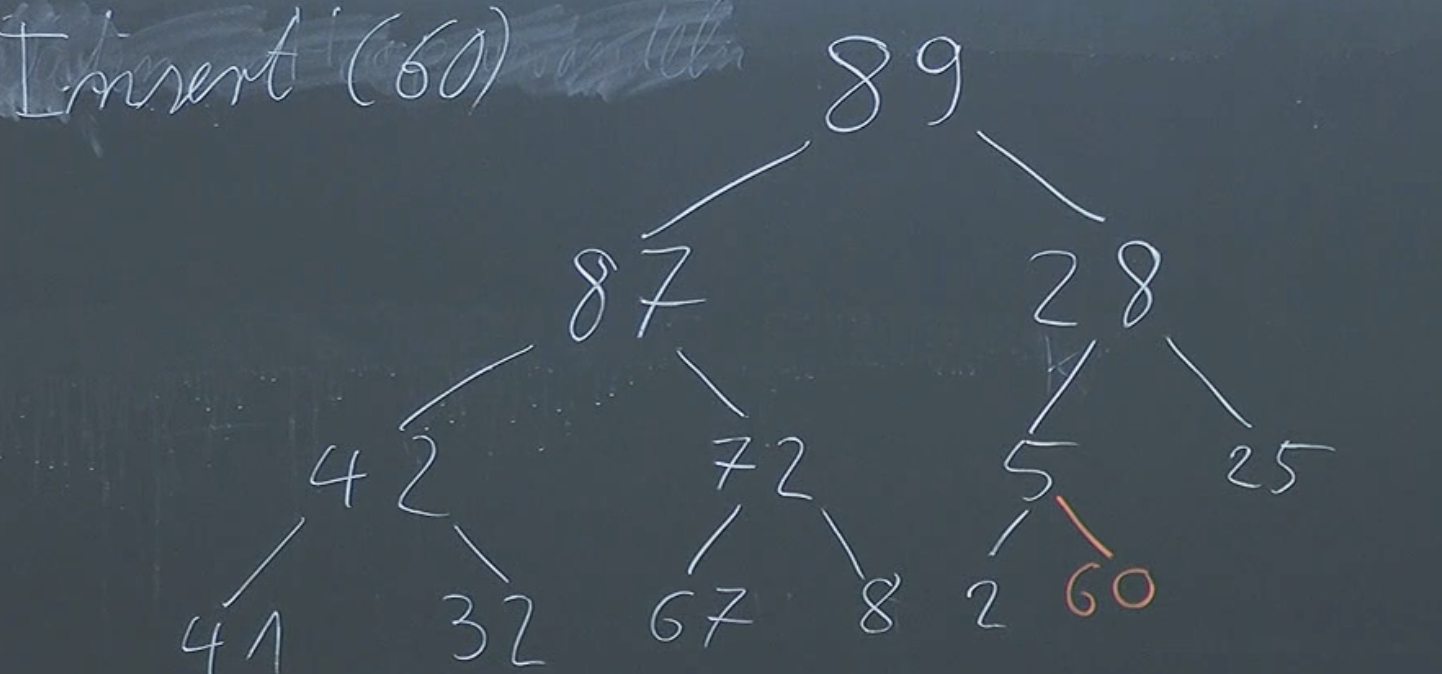 Insert (60)
89
87 28
42 72 5 25
41 32 67 8 2 60